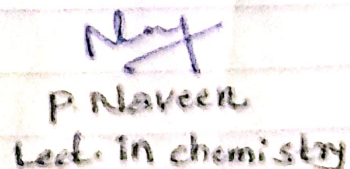 P. Naveen
Lect. In chemistry